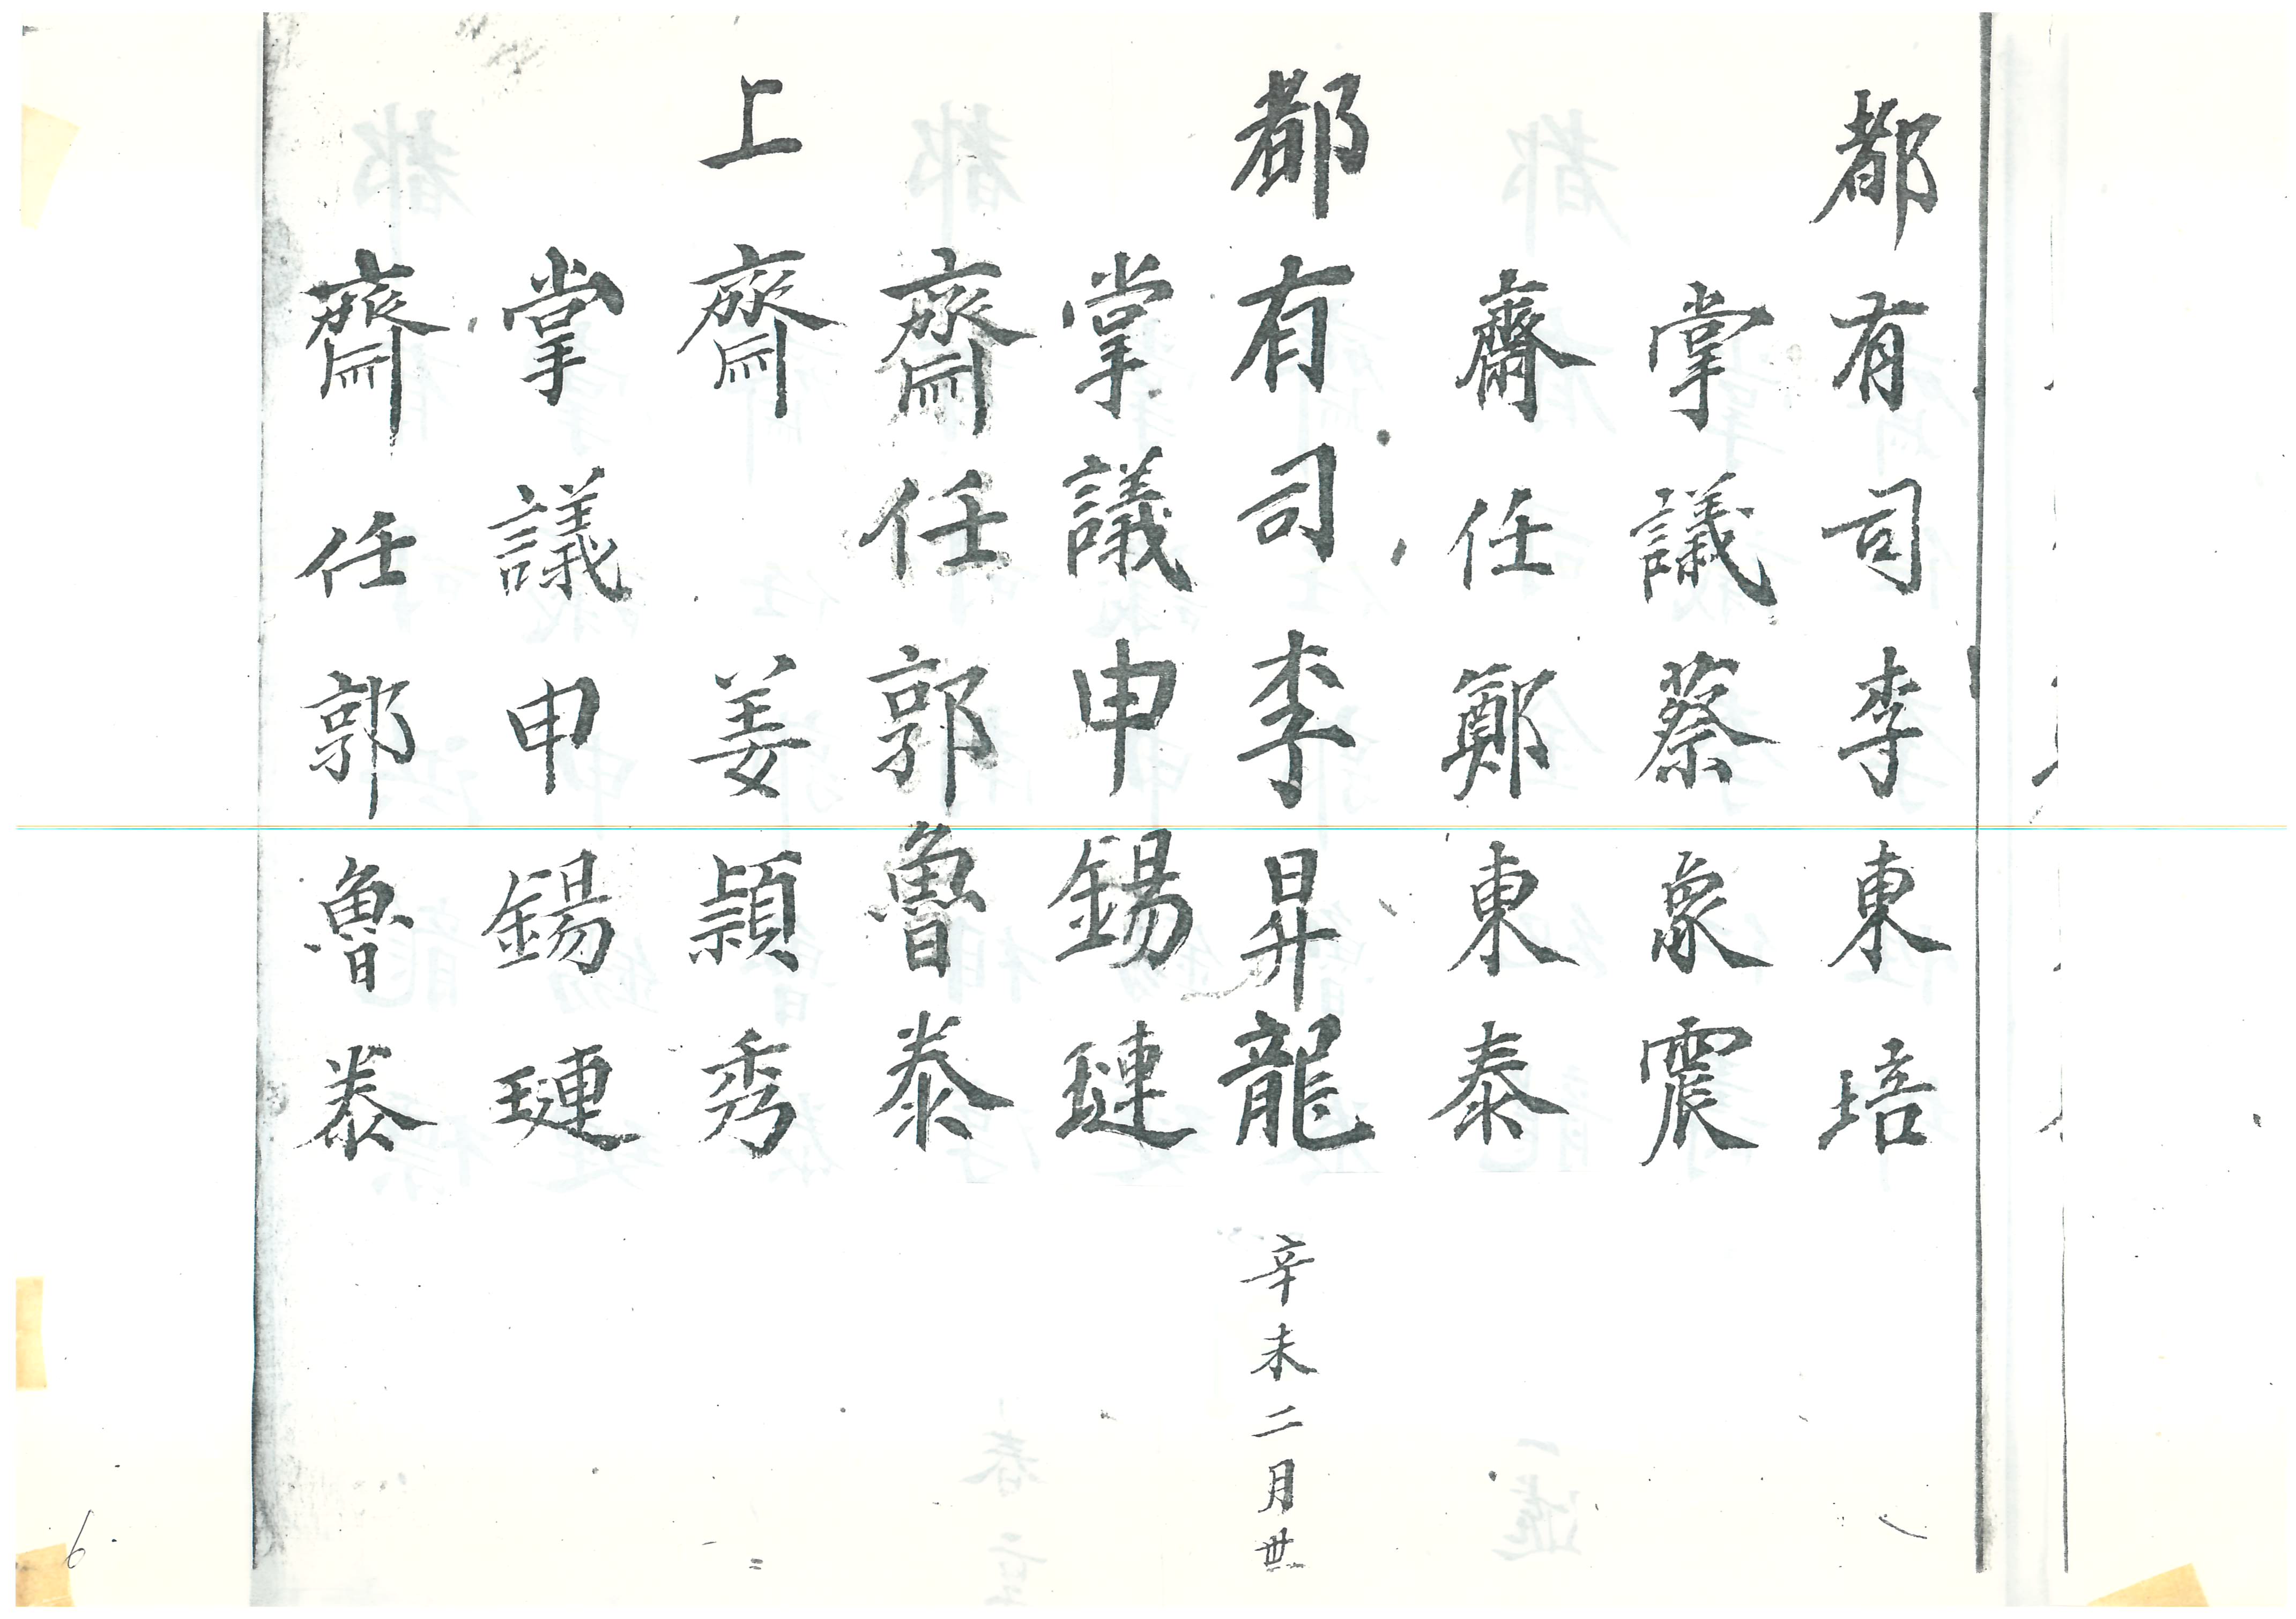 都有司李東培
掌議蔡象震
齋任鄭東泰
都有司李昇龍 辛未二月卋
掌議申錫璉
齋任郭魯泰
上齋 姜頴秀
掌議申錫璉
齋任郭魯泰
6